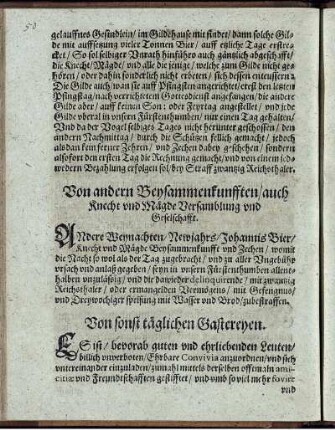 gelauffnes Gesindlein / im Gildehause mit findet / dann solche Gil-
de mit aufffetzung vieler Tonnen Bier / auff etzliche Tage erstre-
cket / So sol selbiger Unrath hinführo auch gäntzlich abgeschafft /
die Knecht / Mägde / und alle die jenige / welche zum Gilde nicht ge-
hören / oder dahin sonderlich nicht erbeten / sich dessen enteussern.
Die Gilde auch wan sie auff Pfingsten angerichtet / erst den letzten
Pfingstag / nach verrichtetem Gottesdienst angefangen / die andere
Gilde aber / auff keinen Son: oder Feyrtag angestellet / und jede
Gilde oberal in unsern Fürstenthumben / nur einen Tag gehalten /
Und da der Vogel selbiges Tages nicht herunter geschossen / den
andern Nachmittag / durch die Schützen fellich gemacht / jedoch
als dan kein ferner Zehren / und Zechen dabey geschehen / sondern
alsofort den ersten Tag die Rechnung gemacht / und von einem jed-
wedern Bezahlung erfolgen sol / bey Straff zwantzig Reichsthaler.
Von andern Beysammenkunfften / auch
Knecht vnd Mägde Versamblung vnd
Gesellschafft.
ANdere Weynachten / Newjahrs / Johannis Bier /
Knecht und Mägde Beysammenkunfft und Zechen / womit
die Nacht so wol als der Tag zugebracht / und zu aller Ungebühr
ursach und anlaß gegeben / seyn in unsern Fürstenthumben allent-
halben unzuläßig / und die danjeder delinquirende / mit zwantzig
Reichsthaler / oder ermangelden Vermögens / mit Gefengnus /
und Dreywochiger speisung mit Wasser und Brod / zubestraffen.
Von sonst täglichen Gastereyen.
ES ist / bevorab guten und ehrliebenden Leuten /
billich unverboten / Ehrbare Convivia anzuordnen / und sich
untereinander einzuladen / zumahl mittels derselben offtmaln ami-
citiæ und Freundtschafften gestifftet / und umb so viel mehr favor
und